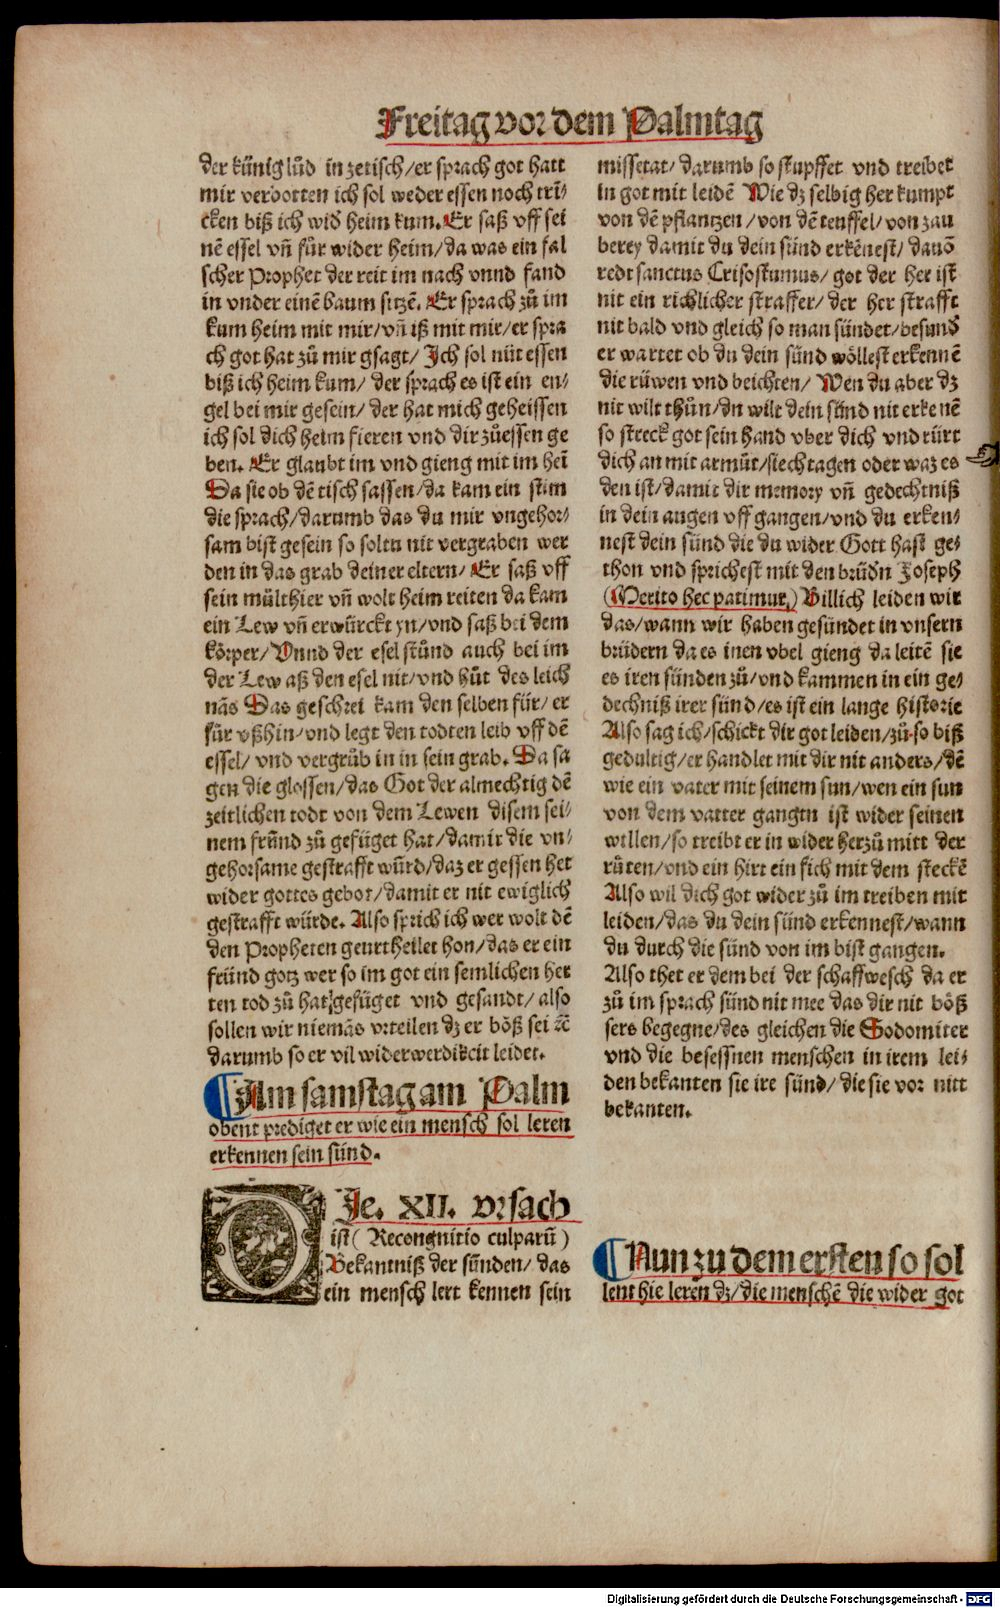 Freitag vor dem Palmtag
der künig lůd in ze tisch/er sprach got hatt
mir verbotten ich sol weder essen noch trī-
cken biß ich wid̕ heim kum. Er saß vff sei
nē essel vñ fůr wider heim/da was ein fal
scher Prophet der reit im nach vnnd fand
in vnder einē baum sitzē. Er sprach zů im
kum heim mit mir/vñ iß mit mir/er spra
ch got hat zů mir gsagt/ Ich sol nüt essen
biß ich heim kum/ der sprach es ist ein en-
gel bei mir gesein/ der hat mich geheissen
ich sol dich heim fieren vnd dir zůessen ge
ben. Er glaubt im vnd gieng mit im heī
Da sie ob dē tisch sassen/da kam ein stim
die sprach/darumb das du mir vngehor-
sam bist gesein so soltu nit vergraben wer
den in das grab deiner eltern/ Er saß vff
sein mülthier vñ wolt heim reiten da kam
ein Lew vñ erwürckt yn/vnd saß bei dem
körper/ Vnnd der esel stůnd auch bei im
der Lew aß den esel nit/vnd hůt des leich
nās Das geschrei kam den selben für/ er
fůr vßhin/vnd legt den todten leib vff dē
essel/ vnd vergrůb in in sein grab. Da sa
gen die glossen/das Got der almechtig dē
zeitlichen todt von dem Lewen disem sei-
nem frůnd zů gefüget hat/damit die vn-
gehorsame gestrafft wůrd/daz er gessen het
wider gottes gebot/damit er nit ewiglich
gestrafft würde. Also sprich ich wer wolt dē
den Propheten geurtheilet hon/das er ein
fründ gotz wer so im got ein semlichen her
ten tod zů hat gefüget vnd gesandt/ also
sollen wir niemās vrteilen dz er böß sei ꝛc̄
darumb so er vil widerwerdikeit leidet.
¶Am samstag am Palm
obent prediget er wie ein mensch sol leren
erkennen sein sünd.
DJe. XII. vrsach
ist (Recongnitio culparū)
Bekantniß der sünden/ das
ein mensch lert kennen sein
missetat/ darumb so stupffet vnd treibet
in got mit leidē Wie dz selbig her kumpt
von dē pflantzen /von dē teuffel/von zau
berey damit du dein sünd erkēnest/ dauō
redt sanctus Crisostumus/ got der her ist
nit ein richlicher straffer/ der her strafft
nit bald vnd gleich so man sündet/besund̕
er wartet ob du dein sünd wöllest erkennē
die rüwen vnd beichten/ Wen du aber dz
nit wilt thůn/du wilt dein sünd nit erkenē
so streck got sein hand vber dich vnd rürt
dich an mit armůt/siechtagen oder waz es
den ist/damit dir memory vñ gedechtniß
in dein augen vff gangen/vnd du erken-
nest dein sünd die du wider Gott hast ge-
thon vnd sprichest mit den brüdn̄ Joseph
(Merito hec patimur,) Billich leiden wir
das/wann wir haben gesündet in vnsern
brüdern da es inen vbel gieng da leitē sie
es iren sünden zů/vnd kammen in ein ge-
dechniß irer sünd/es ist ein lange historie
Also sag ich/schickt dir got leiden/zů-so biß
gedultig/er handlet mit dir nit anders/dē
wie ein vater mit seinem sun/wen ein sun
von dem vatter gangtn ist wider seinen
willen/so treibt er in wider herzů mitt der
růten/vnd ein hirt ein fich mit dem steckē
Also wil dich got wider zů im treiben mit
leiden/das du dein sünd erkennest/wann
du durch die sünd von im bist gangen.
Also thet er dem bei der schaffwesch da er
zů im sprach sünd nit mee das dir nit böß
sers begegne/des gleichen die Sodomiter
vnd die besessnen menschen in irem lei-
den bekanten sie ire sünd/ die sie vor nitt
bekanten.
¶Nun zu dem ersten so sol
lent hie leren dz/die menschē die wider got
Digitalisierung gefördert durch die Deutsche Forschungsgemeinschaft - DFG